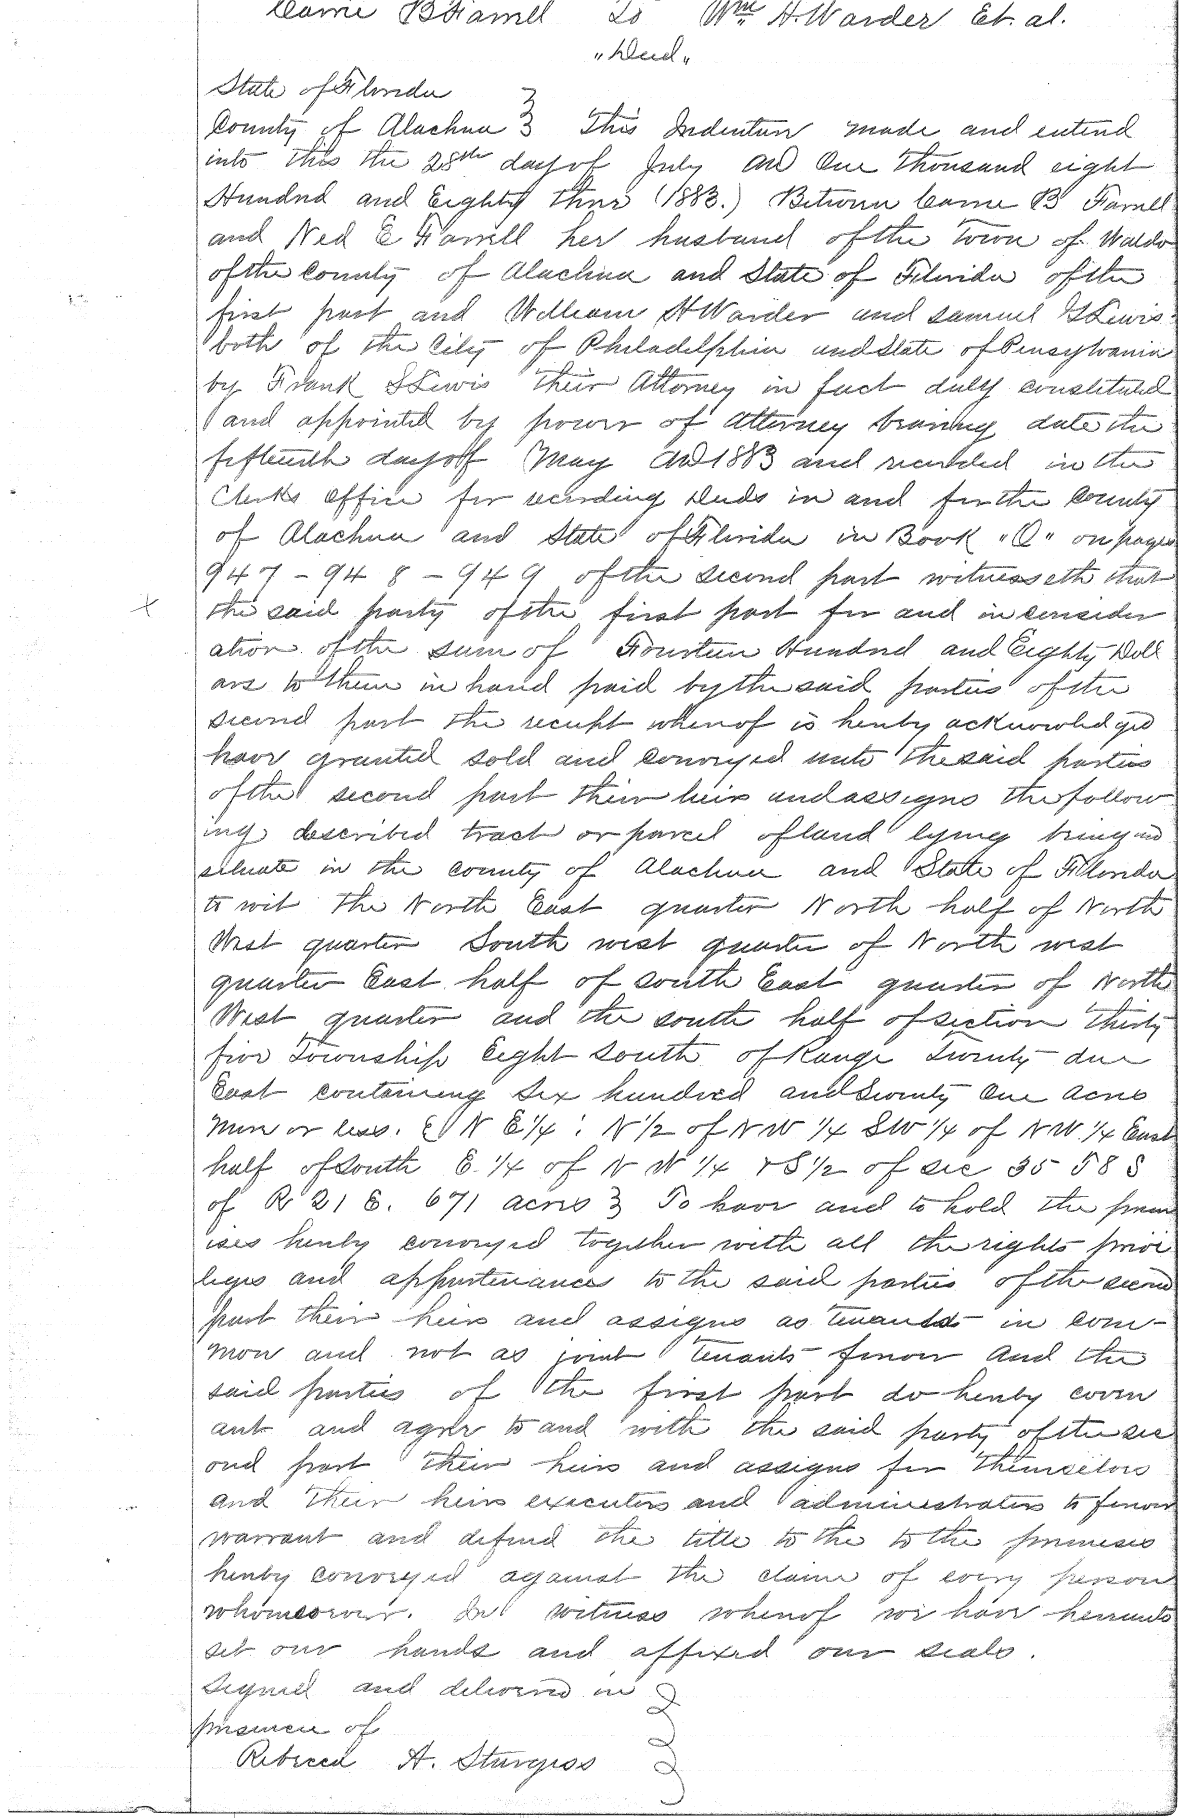 Carrie B Farrell To Wm H. Warder Et. al.
"Deed"
State of Florida
County of Alachua } This Indenture made and enterd
into this the 28th day of July AD One Thousand eight
Hundred and Eighty three (1883.) Between Carrie B Farrell
and Ned E Farrell her husband of the Town of Waldo
of the County of Alachua and State of Florida of the
first part and William H Warder and Samuel G Lewis
both of the City of Philadelphia and State of Pensylvania
by Frank S Lewis their Attorney in fact duly constituted
and appointed by power of Attorney bearing date the
fifteenth day of May AD 1883 and recorded in the
Clerks office for recording Deeds in and for the County
of Alachua and State of Florida in Book "Q" on pages
947 - 948 - 949 of the second part witnesseth that
the said party of the first part for and in consider
ation of the sum of Fourteen Hundred and Eighty Doll
ars to them in hand paid by the said parties of the
second part the receipt whereof is hereby acknowledged
have granted sold and conveyed unto the said parties
of the second part their heirs and assigns the follow
ing described tract or parcel of land lying being and
situate in the county of Alachua and State of Florida
to wit The North East quarter North half of North
West quarter South west quarter of North west
quarter East half of south East quarter of North
West quarter and the south half of section Thirty
five Township Eight south of Range Twenty one
East containing Six hundred and Seventy One acres
more or less. { N E 1/4 : N 1/2 of N W 1/4 SW 1/4 of N W. 1/4 East
half of South E. 1/4 of N W 1/4 & S 1/2 of sec 35 T 8 S
of R 21 E. 671 acres } To have and to hold the prem
ises hereby conveyed together with all the rights privi
leges and appurtenances to the said parties of the second
part their heirs and assigns as tenants in com-
mon and not as joint tenants forever And the
said parties of the first part do hereby coven
ant and agree to and with the said party of the sec
ond part their heirs and assigns for themselves
and their heirs executors and administrators to forever
warrant and defend the title to the to the premises
hereby conveyed against the claim of every person
whomsoever. In witness whereof we have hereunto
set our hands and affixed our seals.
Signed and delivered in
presence of
Rebecca A. Sturgess